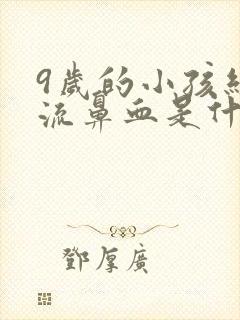 9歲的小孩經
流鼻血是什
鄧厚廣